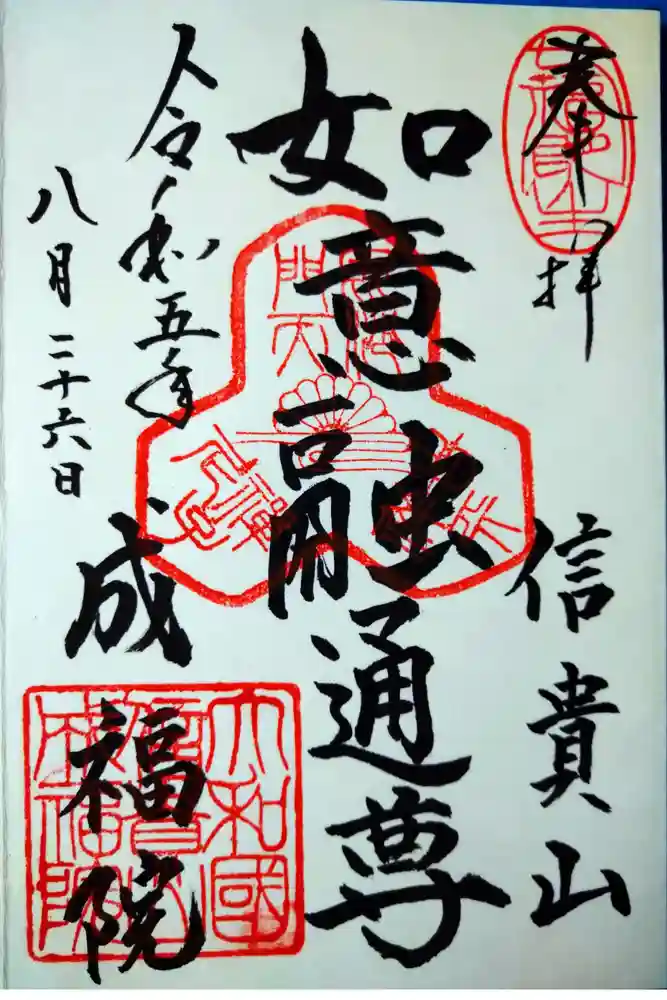 奉拝
信貴山
如意融通尊
令和五年
八月二十六日
成福院
大和國
信貴山
成福院